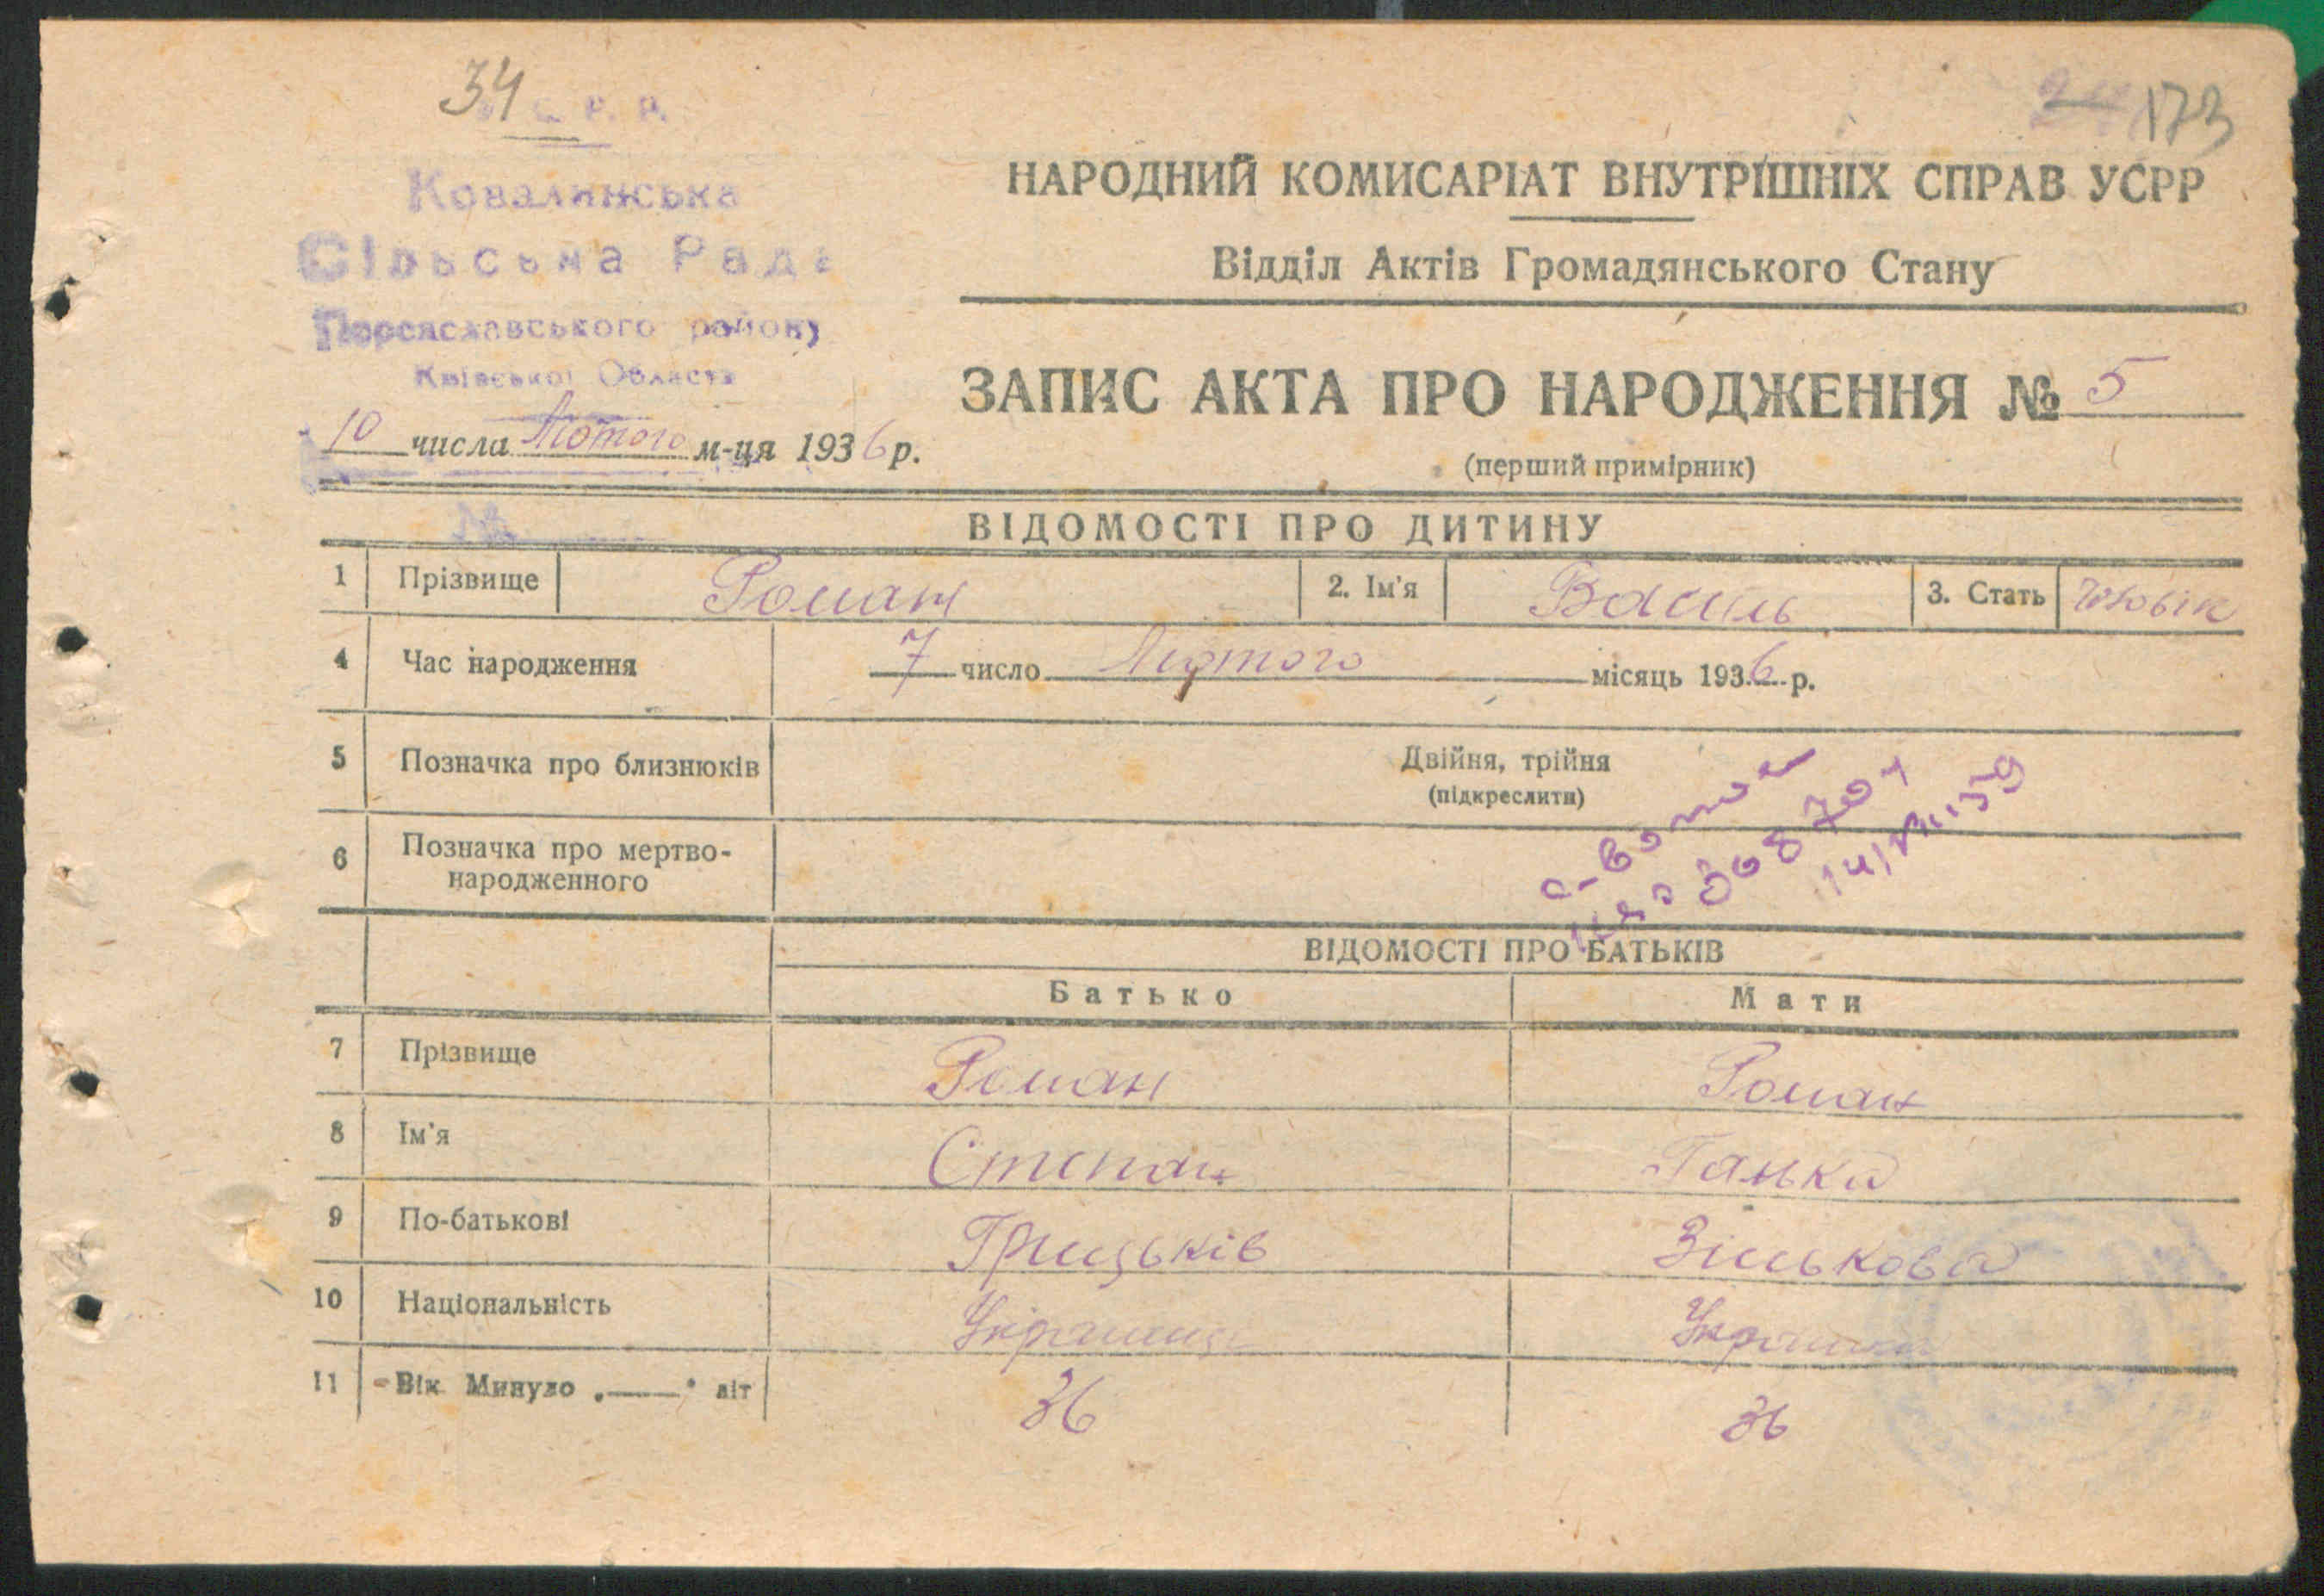 34
С. Р. Р.
173
Ковалинська
Сільська Рада
Переяславського району
Київської Області
10 числа Лютого м-ця 1936 р.
№
НАРОДНИЙ КОМИСАРІАТ ВНУТРІШНІХ СПРАВ УСРР
Відділ Актів Громадянського Стану
ЗАПИС АКТА ПРО НАРОДЖЕННЯ № 5
(перший примірник)
ВІДОМОСТІ ПРО ДИТИНУ
1 Прізвище Роман 2. Ім'я Василь 3. Стать чоловік
4 Час народження 7 число Лютого місяць 1936 р.
5 Позначка про близнюків Двійня, трійня
(підкреслити)
6 Позначка про мертво-
народженного
308707
14/VIII 39
ВІДОМОСТІ ПРО БАТЬКІВ
Батько Мати
7 Прізвище Роман Роман
8 Ім'я Степан Ганка
9 По-батькові Грицьків Зінькова
10 Національність Українець Українка
11 Вік Минуло „—" літ 36 36